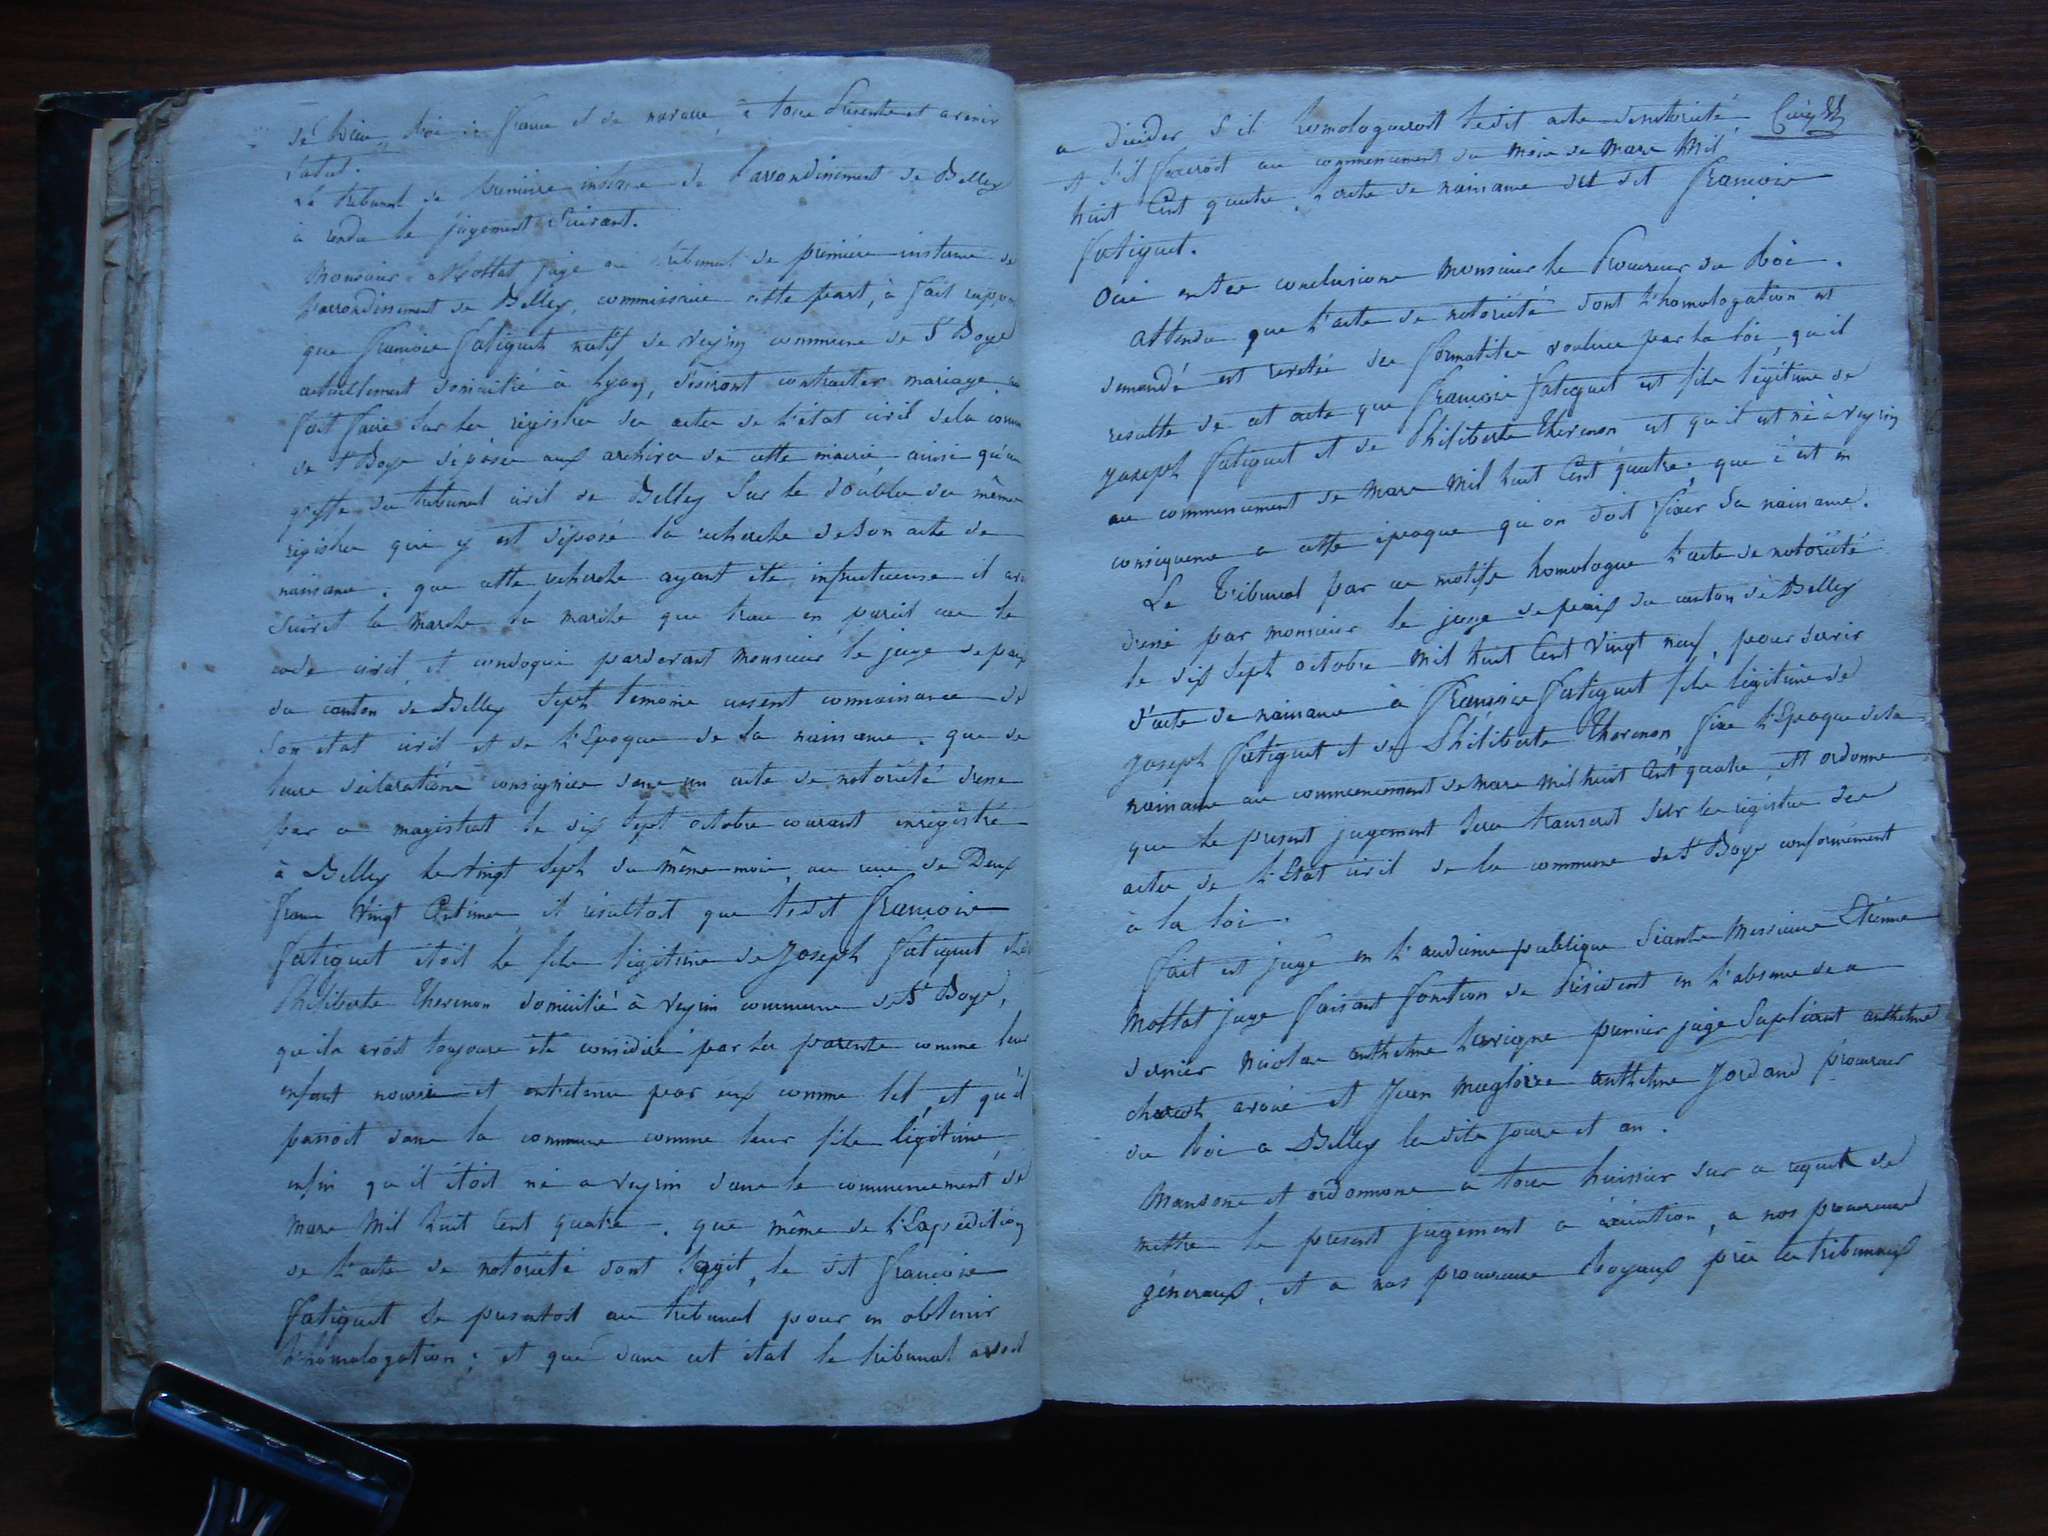 de Dieu, Roi de france et de navarre à tous Présents et avenir
Salut.
Le tribunal de première instance de l'arrondissement de Belley
à rendu le jugement Suivant.
Monsieur Mottat juge au tribunal de première instance de
l'arrondissement de Belley, commissaire cette part, à fait rapport
que françois fatiguet natif de veyrin commune de St Boys
actuellement domicilié à Lyon, désirant contracter mariage a
fait faire Sur les registres des actes de l'état civil de la comm
de St Boys déposés aux archives de cette mairie ainsi qu'au
greffe du tribunal civil de Belley Sur le double des même
registres que y est déposé la recherche de Son acte de
naissance. que cette recherche ayant été infructueuse il avoi
Suivit la marche la marche que trace en pareil cas le
code civil, et convoqué pardevant Monsieur le juge de paix
du canton de Belley Sept temoins ayant connaissance de
Son état civil et de l'Epoque de Sa naissance. que de
leurs déclarations consignées dans un acte de notoriété dressé
par ce magistrat le dix Sept octobre courant enregistré
à Belley le vingt Sept du même mois, au reçu de Deux
francs Vingt Centimes il résultoit que ledit françois
fatiguet étoit le fils légitime de Joseph fatiguet et de
Philiberte Thevenon domicilié à veyrin commune de St Boys,
qu'ils avoit toujours été considéré par les parents comme leur
enfant nourri et entretenu par eux comme tel, et qu'il
passoit dans la commune comme leur fils légitime,
enfin qu'il étoit né a veyrin dans le commencement de
mars Mil huit Cent quatre. que même de l'Expédition
de l'acte de notoriété dont Sagit, le dit françois
fatiguet Se présentoit au tribunal pour en obtenir
l'homologation; et que dans cet état le tribunal avoit
a décider S'il homologueroit ledit acte de notoriété
et S'il fixeroit au commencement du mois de Mars Mil
huit Cent quatre, l'acte de naissance du dit françois
fatiguet.
Oui en Ses conclusions Monsieur le Procureur du Roi.
Attendu que l'acte de notoriété dont l'homologation est
demandé est revetée des formalités voulues par la loi, qu'il
resulte de cet acte que françois fatiguet est fils légitime de
Joseph fatiguet et de Philiberte Thevenon et qu'il est né à veyrin
au commencement de Mars Mil huit Cent quatre, que c'est en
consequence a cette époque qu'on doit fixer Sa naissance.
Le Tribunal par ces motifs homologue l'acte de notoriété
dressé par monsieur le juge de paix du canton de Belley
le dix Sept octobre Mil huit Cent Vingt neuf, pour Servir
d'acte de naissance à françois fatiguet fils légitime de
Joseph fatiguet et de Philiberte Thevenon, fixe l'Epoque de Sa
naissance au commencement de Mars Mil huit Cent quatre, et ordonne
que le présent jugement Sera transcrit Sur les registres des
actes de l'Etat civil de la commune de St Boys conformément
à la loi.
fait et jugé en l'audience publique Séante Messieurs Etienne
Mottat juge faisant fonction de Président en l'absence de ce
dernier Nicolas anthelme Lavigne premier juge Supléant anthelme
avoué et Jean Magloire anthelme Jordand procureur
du Roi a Belley les dits jours et an.
Mandons et ordonnons a tous huissiers sur ce requis de
mettre le présent jugement a éxécution, a nos procureurs
généraux, et a nos procureurs Royaux près les tribunaux